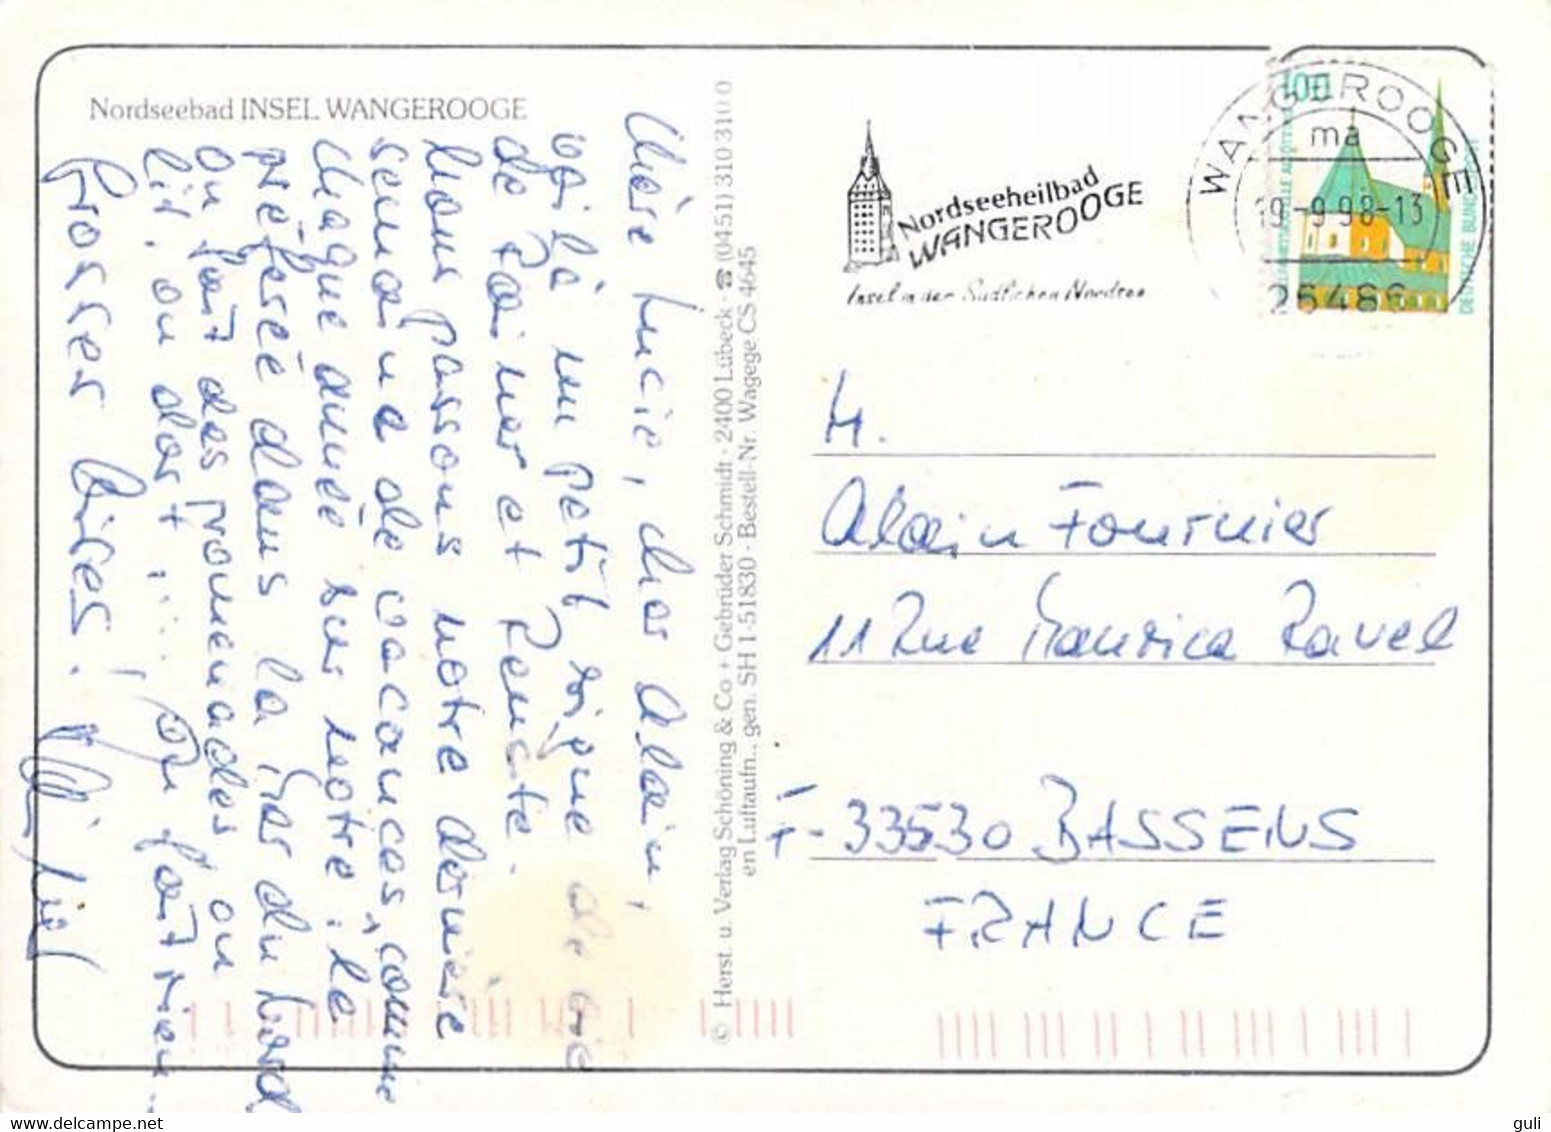 Nordseebad INSEL WANGEROOGE
Chère Lucie, cher Alain,
voilà un petit signe de vie
de Rainer et Renate.
Nous passons notre dernière
semaine de vacances, comme
chaque année sur notre île
préferée dans la Mer du Nord
On fait des promenades, on
lit, on dort .... On fait rien
!
Grosses bises!
© Herst. u. Verlag Schöning & Co + Gebrüder Schmidt · 2400 Lübeck · ☎ (0451) 310 310 0
en Luftaufn., gen. SH 1-51830 · Bestell-Nr. Wagege CS 4645
Nordseeheilbad
WANGEROOGE
Insel in der Südlichen Nordsee
WANGEROOGE
ma
19.-9.98-13
26486
100
WALLFAHRTSKAPELLE ALTÖTTING
DEUTSCHE BUNDESPOST
M.
Alain Fournier
11 Rue Maurice Ravel
F-33530 BASSENS
FRANCE
guli